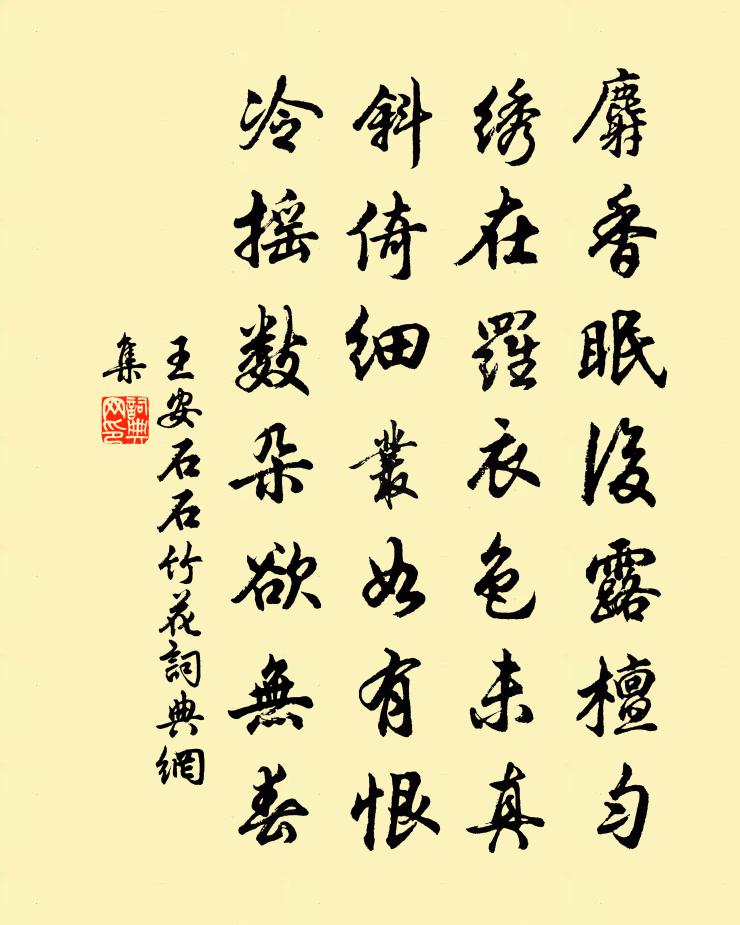 麝香眠後露檀匀
绣在羅衣色未真
斜倚細叢如有恨
冷摇數朵欲無春
王安石石竹花詞典網
集
詞典
网印